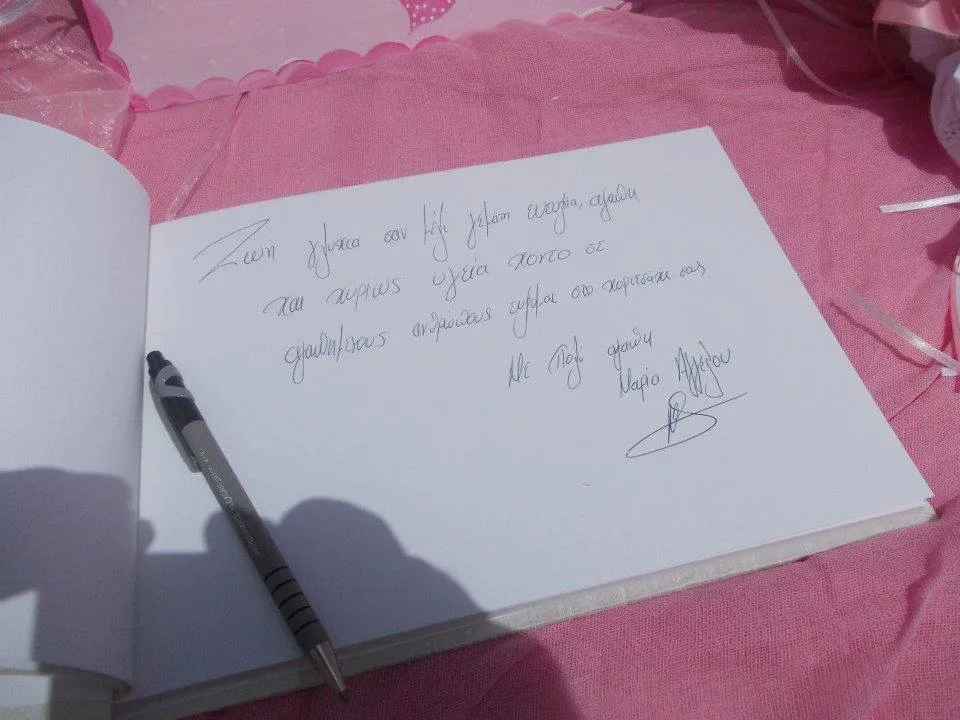 Ζωη γλυκια σαν μέλι γεμάτη ευτυχία, αγαπη
και κυρίως υγεία κοντα σε
αγαπημένους ανθρώπους ευχομαι στο κοριτσάκι σας
Με πολλή αγαπη
Μαρία Αγγέλου